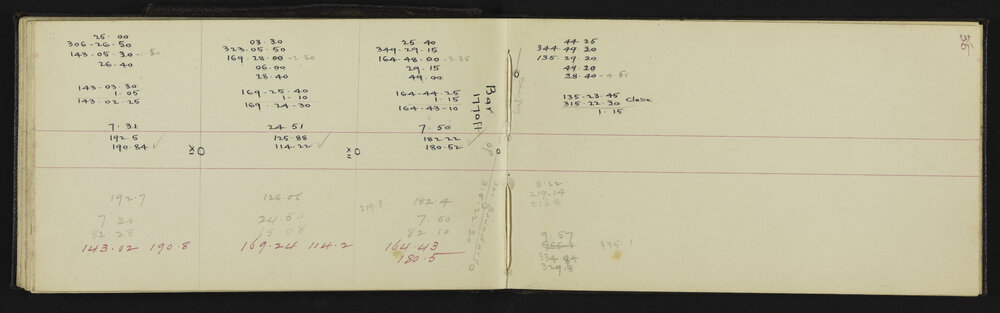 25·00
306-26-50
143-05-30-1·50
26·40
143-03-30
1·05
143-02-25
7·31
192·5
190·84
XI
192·7
7 30
82-28
143·02 190·8
03·30
323-05-50
169-28-00-2·50
06·00
28·40
169-25-40
1·10
169-24-30
24·51
125·88
114·22
XII
24·50
169·24 114·2
211·3
25·40
349-29-15
164-48-00
29·15
49·00
164-44-25
1·15
164-43-10
7·50
182·22
180·52
182·4
7 50
82 10
164·43
180·5
Bar
1770ft
36
44-25
344-49-20
135 29-20
49·20
28·40
135-23-45
315-22-30 Close
1·15
8·22
219·14
216·8
9·57
335·1
334·84
329·8